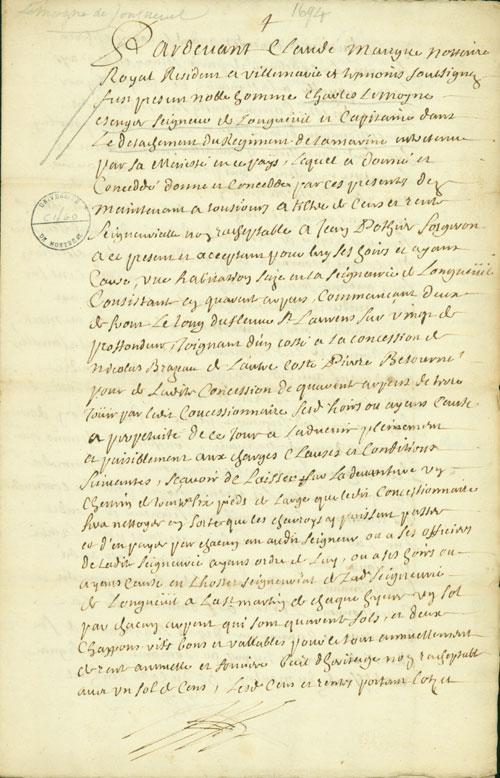 Lemoyne de Longueuil
1694
1
Pardevant Claude Maugue nottaire
Royal Resident a villemarie et temoins soussignez
fust present noble homme Charles Lemoyne
escuyer Seigneur de Longueüil et Capitaine dans
Le detachement du Regiment de la marine entretenu
par sa Majesté en ce pays, lequel a donné et
Conceddé donne et Concedde par ces presents dez
maintenant a tousiours a tiltre de Cens et rente
Seigneurialle non racheptable a Jean Pothier
a ce present et acceptant pour luy ses hoirs et ayans
Cause, une habitation size en la Seigneurie de Longueüil
Consistant en quarant arpens, Commançant deux
de front Le long du fleuve St Laurens sur vingt de
proffondeur, Joignant d'un costé a la concession de
Nicolas Brazeau de L'autre Costé Pierre Betourné
pour de Ladite Concession de quarant arpens de terre
Jouir par ledit Concessionnaire sesd hoirs ou ayans Cause
a perpetuité de ce Jour a Ladvenir plainement
et paisiblement aux charges Clauses et Conditions
suivantes, scavoir de Laisser sur La devanture un
Chemin de trente six pieds de Large que ledit Concessionnaire
fera nettoyer en sorte que les charroys y puissent passer
et d'en payer par chacun an audit Seigneur ou a ses officiers
de Ladite Seigneurie ayans ordre de Luy, ou a ses hoirs ou
ayans Cause en Lhostel seigneurial de Lad Seigneurie
de Longueüil a La St martin de chaque hyver un sol
par chacun arpent qui font quarent sols, et deux
Chappons vifs bons et vallables pour le tout annuellement
de rent annuelle et fonciere bail dheritage non racheptable
avec un sol de Cens, Lesd Cens et rentes portant Lotz et
UNIVERSITÉ
DE MONTRÉAL